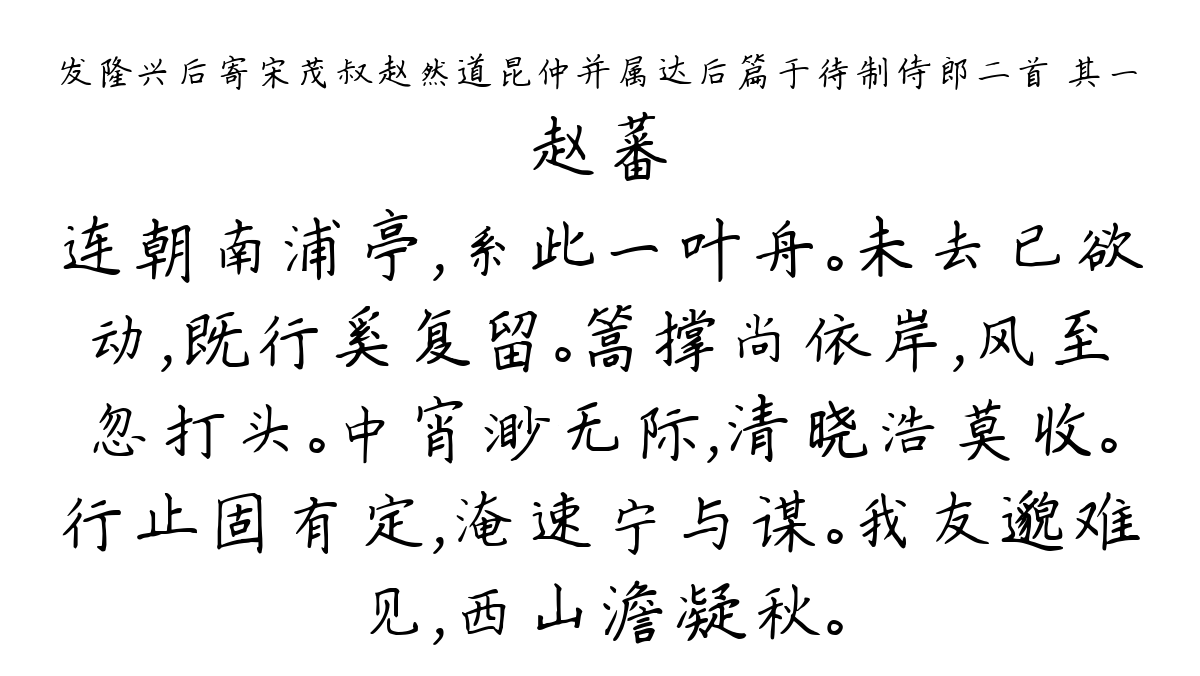 发隆兴后寄宋茂叔赵然道昆仲并属达后篇于待制侍郎二首 其一
赵蕃
连朝南浦亭,系此一叶舟。未去已欲
动,既行奚复留。篙撑尚依岸,风至
忽打头。中宵渺无际,清晓浩莫收。
行止固有定,淹速宁与谋。我友邈难
见,西山澹凝秋。